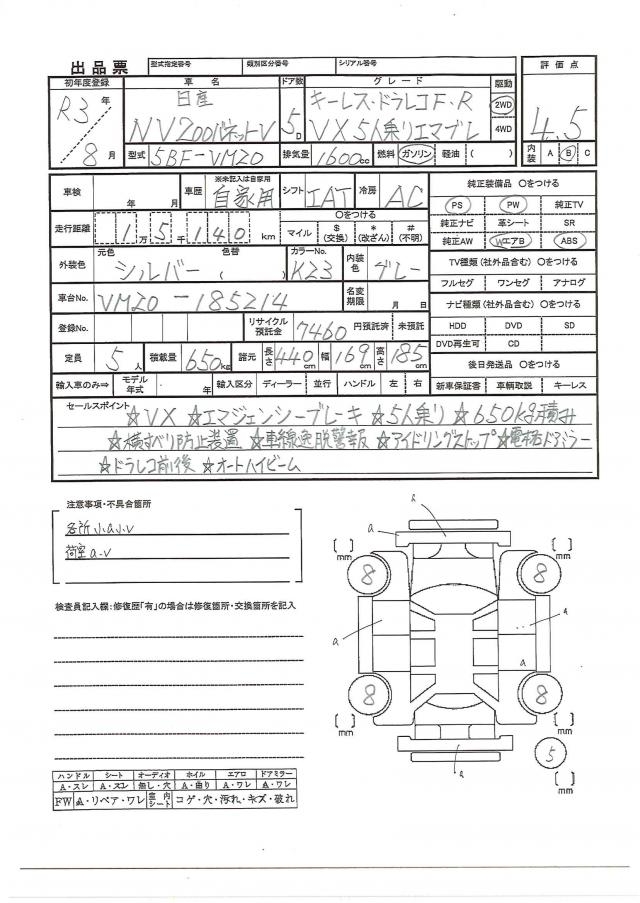 出品票 型式指定番号 類別区分番号 シリアル番号
初年度登録 車名 ドア数 グレード 駆動 評価点
R3年 日産 5D キーレス・ドラレコF・R 2WD 4.5
8月 NV200バネットV VX 5人乗りエマブレ 4WD
型式 5BF-VM20 排気量 1600cc 燃料 ガソリン 軽油 ( ) 内装 A B C
車検 年 月 車歴 ※未記入は自家用 自家用 シフト IAT 冷房 AC 純正装備品 〇をつける
PS PW 純正TV
走行距離 1万5千140km 〇をつける マイル $(交換) *(改ざん) #(不明) 純正ナビ 革シート SR
純正AW WエアB ABS
外装色 元色 シルバー 色替 ( ) カラーNo. K23 内装色 グレー TV種類(社外品含む) 〇をつける
フルセグ ワンセグ アナログ
車台No. VM20-185214 名変期限 月 日 ナビ種類(社外品含む) 〇をつける
登録No. リサイクル預託金 7460円預託済 未預託 HDD DVD SD
DVD再生可 CD
定員 5人 積載量 650kg 諸元 長さ440cm 幅169cm 高さ185cm 後日発送品 〇をつける
輸入車のみ⇒ モデル年式 年 輸入区分 ディーラー 並行 ハンドル 左 右 新車保証書 車輌取説 キーレス
セールスポイント ☆VX ☆エマジェンシーブレーキ ☆5人乗り ☆650kg積み
☆横すべり防止装置 ☆車線逸脱警報 ☆アイドリングストップ ☆電格ドアミラー
☆ドラレコ前後 ☆オートハイビーム
注意事項・不具合箇所
各所小a小v
荷室a.v
検査員記入欄:修復歴「有」の場合は修復箇所・交換箇所を記入
a
a
[ ]mm [ ]mm
8 8
a a
a
8 8
[ ]mm [ ]mm
a
5
ハンドル シート オーディオ ホイル エアロ ドアミラー
A・スレ A・スレ 無し・穴 A・曲り A・ワレ A・ワレ
FW A・リペア・ワレ 室内シート コゲ・穴・汚れ・キズ・破れ